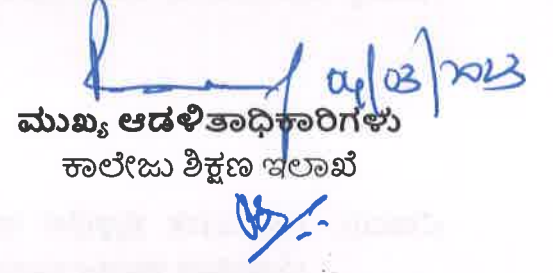 04/03/2023
ಮುಖ್ಯ ಆಡಳಿತಾಧಿಕಾರಿಗಳು
ಕಾಲೇಜು ಶಿಕ್ಷಣ ಇಲಾಖೆ